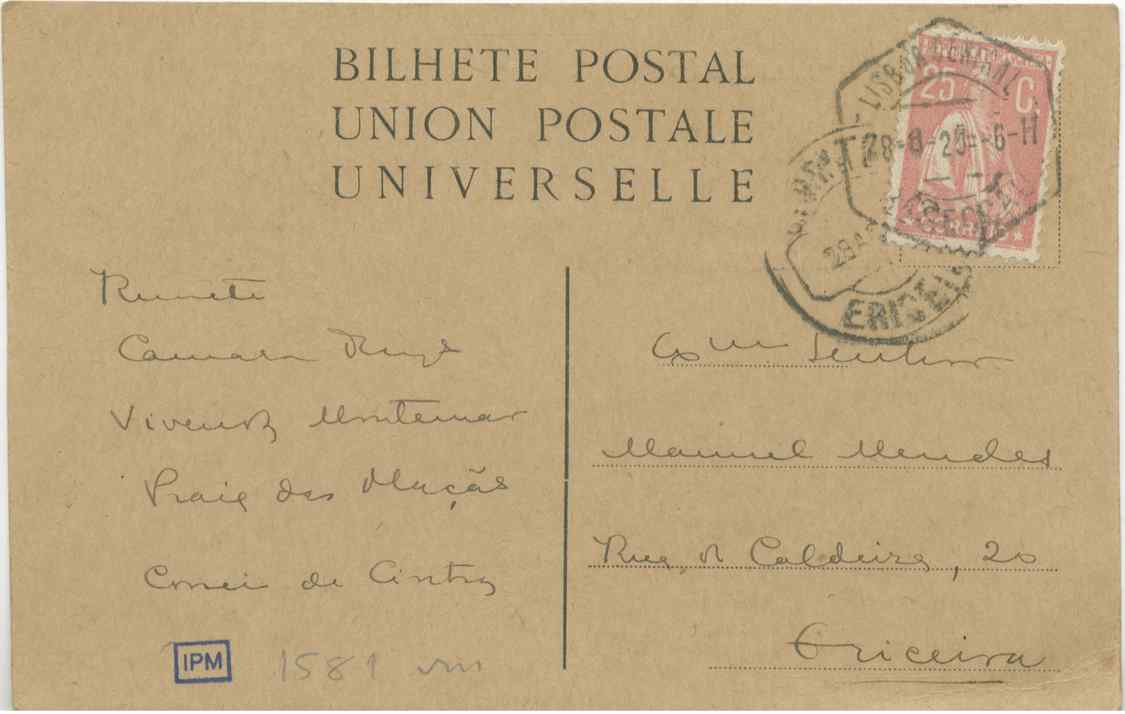 BILHETE POSTAL
UNION POSTALE
UNIVERSELLE
LISBOA CENTRAL
25 C.
CORREIO
ERICEIRA
Remete
Camara Reys
Vivenda Montemar
Praia das Maçãs
Correio de Cintra
Exmo Senhor
Manuel Mendes
Rua do Caldeira, 20
Ericeira
IPM
1581